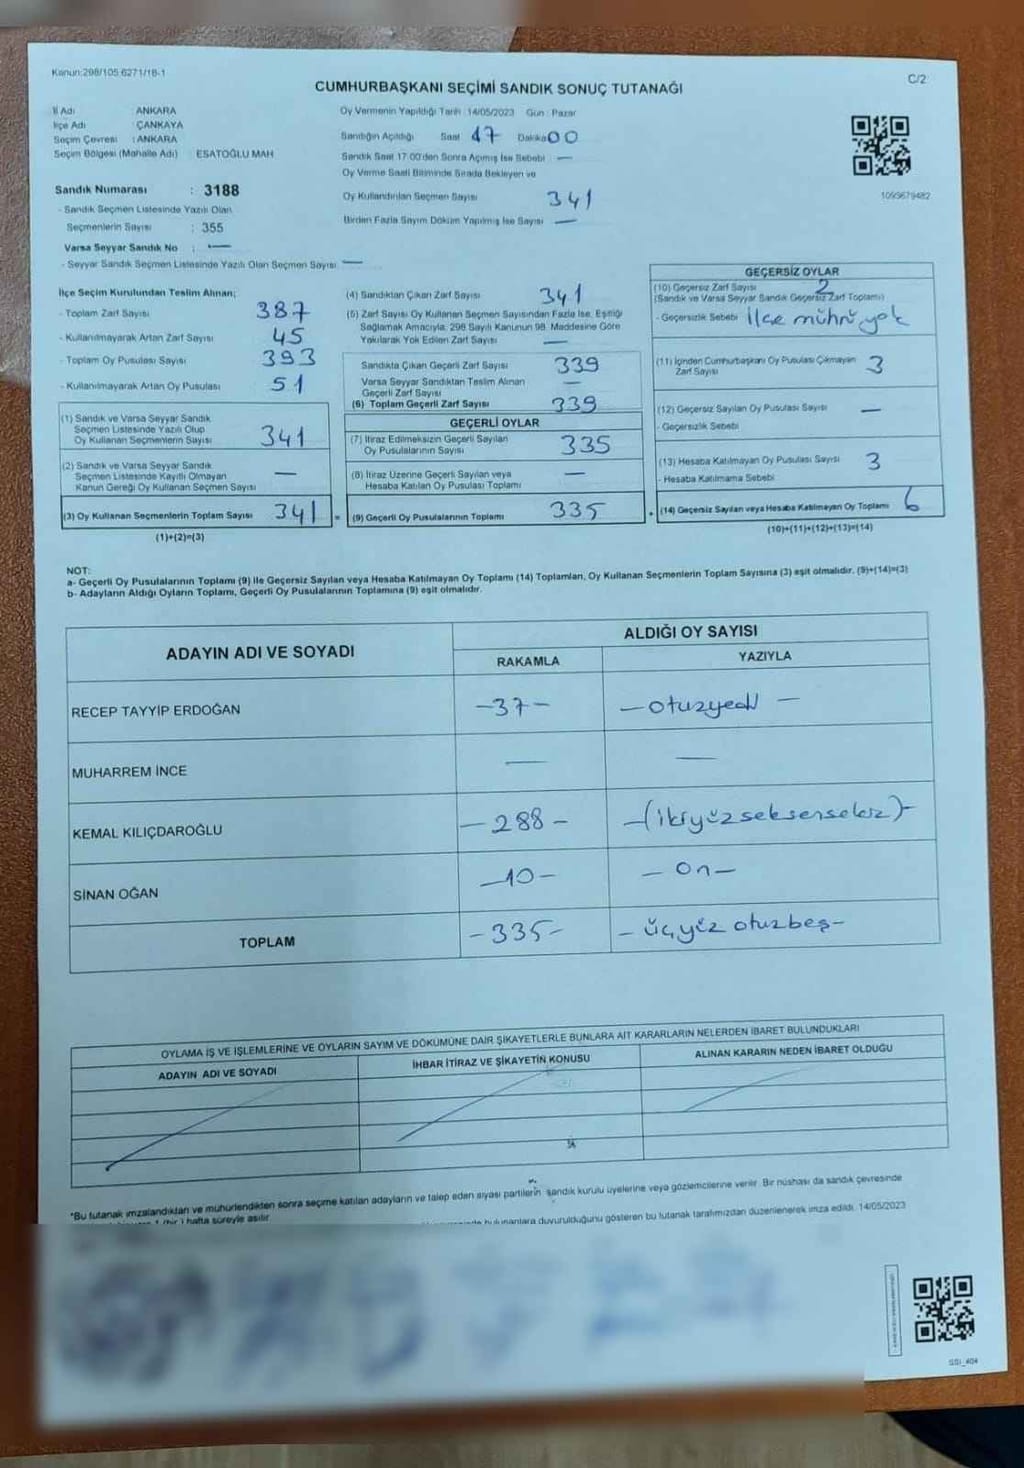 Kanun:298/105 6271/18-1
C/2
CUMHURBAŞKANI SEÇİMİ SANDIK SONUÇ TUTANAĞI
İl Adı : ANKARA
İlçe Adı : ÇANKAYA
Seçim Çevresi : ANKARA
Seçim Bölgesi (Mahalle Adı) : ESATOĞLU MAH
Sandık Numarası : 3188
- Sandık Seçmen Listesinde Yazılı Olan
Seçmenlerin Sayısı : 355
Varsa Seyyar Sandık No : —
- Seyyar Sandık Seçmen Listesinde Yazılı Olan Seçmen Sayısı —
Oy Vermenin Yapıldığı Tarih : 14/05/2023 Gün : Pazar
Sandığın Açıldığı Saat 17 Dakika 00
Sandık Saat 17.00'den Sonra Açımış İse Sebebi —
Oy Verme Saati Bitiminde Sırada Bekleyen ve
Oy Kullandırılan Seçmen Sayısı 341
Birden Fazla Sayım Döküm Yapılmış İse Sayısı —
1093679482
İlçe Seçim Kurulundan Teslim Alınan;
- Toplam Zarf Sayısı 387
- Kullanılmayarak Artan Zarf Sayısı 45
- Toplam Oy Pusulası Sayısı 393
- Kullanılmayarak Artan Oy Pusulası 51
(1) Sandık ve Varsa Seyyar Sandık
Seçmen Listesinde Yazılı Olup
Oy Kullanan Seçmenlerin Sayısı 341
(2) Sandık ve Varsa Seyyar Sandık
Seçmen Listesinde Kayıtlı Olmayan
Kanun Gereği Oy Kullanan Seçmen Sayısı —
(3) Oy Kullanan Seçmenlerin Toplam Sayısı 341 =
(1)+(2)=(3)
(4) Sandıktan Çıkan Zarf Sayısı 341
(5) Zarf Sayısı Oy Kullanan Seçmen Sayısından Fazla İse, Eşitliği
Sağlamak Amacıyla, 298 Sayılı Kanunun 98. Maddesine Göre
Yakılarak Yok Edilen Zarf Sayısı —
Sandıkta Çıkan Geçerli Zarf Sayısı 339
Varsa Seyyar Sandıktan Teslim Alınan
Geçerli Zarf Sayısı —
(6) Toplam Geçerli Zarf Sayısı 339
GEÇERLİ OYLAR
(7) İtiraz Edilmeksizin Geçerli Sayılan
Oy Pusulalarının Sayısı 335
(8) İtiraz Üzerine Geçerli Sayılan veya
Hesaba Katılan Oy Pusulası Toplamı —
(9) Geçerli Oy Pusulalarının Toplamı 335 +
GEÇERSİZ OYLAR
(10) Geçersiz Zarf Sayısı 2
(Sandık ve Varsa Seyyar Sandık Geçersiz Zarf Toplamı)
- Geçersizlik Sebebi İlçe mührü yok
(11) İçinden Cumhurbaşkanı Oy Pusulası Çıkmayan
Zarf Sayısı 3
(12) Geçersiz Sayılan Oy Pusulası Sayısı —
- Geçersizlik Sebebi
(13) Hesaba Katılmayan Oy Pusulası Sayısı 3
- Hesaba Katılmama Sebebi
(14) Geçersiz Sayılan veya Hesaba Katılmayan Oy Toplamı 6
(10)+(11)+(12)+(13)=(14)
NOT:
a- Geçerli Oy Pusulalarının Toplamı (9) ile Geçersiz Sayılan veya Hesaba Katılmayan Oy Toplamı (14) Toplamları, Oy Kullanan Seçmenlerin Toplam Sayısına (3) eşit olmalıdır. (9)+(14)=(3)
b- Adayların Aldığı Oyların Toplamı, Geçerli Oy Pusulalarının Toplamına (9) eşit olmalıdır.
ADAYIN ADI VE SOYADI
ALDIĞI OY SAYISI
RAKAMLA YAZIYLA
RECEP TAYYİP ERDOĞAN -37- -otuzyedi-
MUHARREM İNCE — —
KEMAL KILIÇDAROĞLU -288- -(ikiyüzseksensekiz)-
SİNAN OĞAN -10- -On-
TOPLAM -335- -üçyüz otuzbeş-
OYLAMA İŞ VE İŞLEMLERİNE VE OYLARIN SAYIM VE DÖKÜMÜNE DAİR ŞİKAYETLERLE BUNLARA AİT KARARLARIN NELERDEN İBARET BULUNDUKLARI
ADAYIN ADI VE SOYADI İHBAR İTİRAZ VE ŞİKAYETİN KONUSU ALINAN KARARIN NEDEN İBARET OLDUĞU
*Bu tutanak imzalandıktan ve mühürlendikten sonra seçime katılan adayların ve talep eden siyasi partilerin sandık kurulu üyelerine veya gözlemcilerine verilir. Bir nüshası da sandık çevresinde
1 (bir) hafta süreyle asılır.
bulunanlara duyurulduğunu gösteren bu tutanak tarafımızdan düzenlenerek imza edildi. 14/05/2023
SSI_404